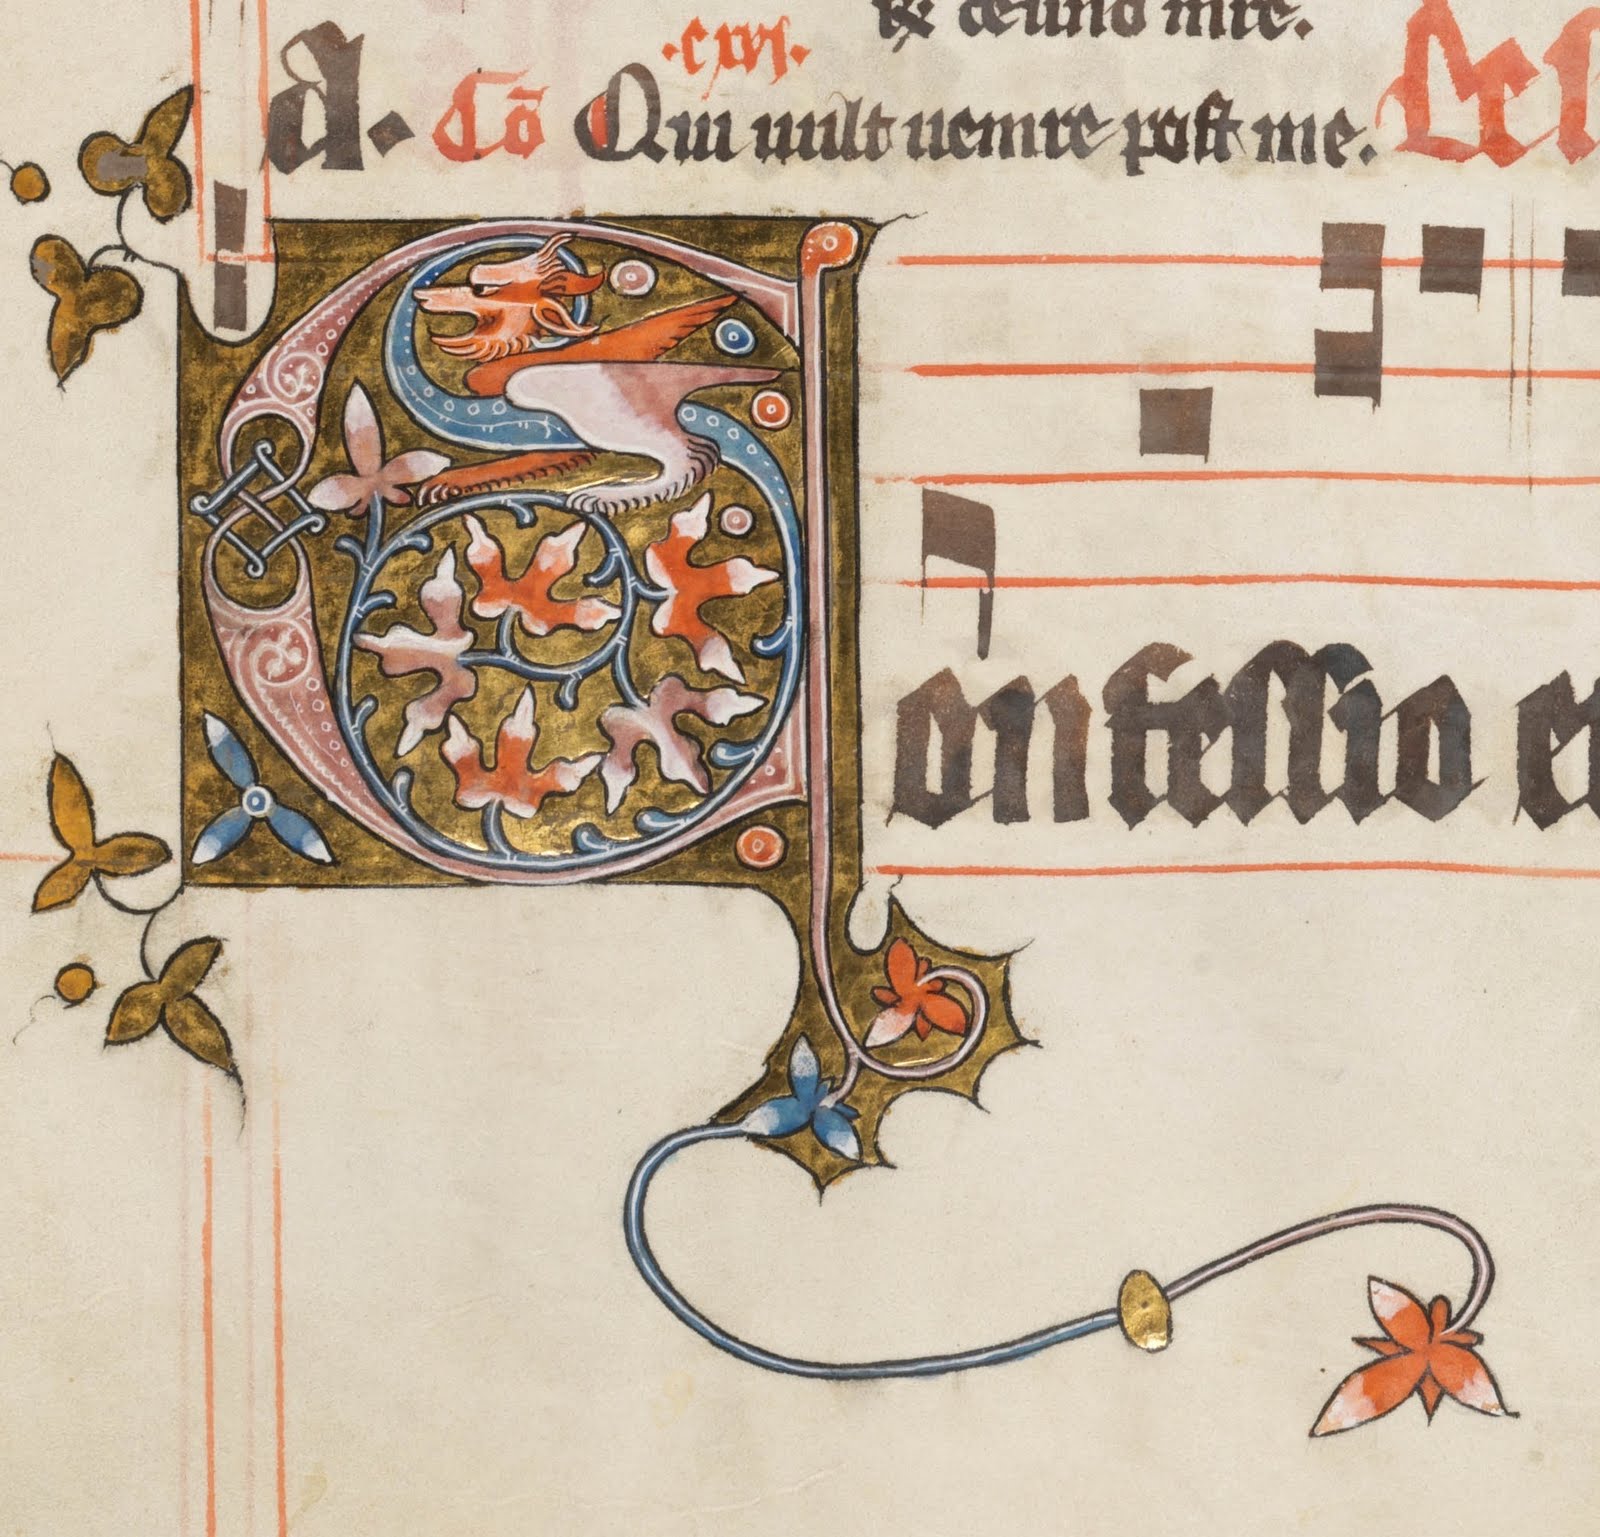 ℟ de uno mr̄e.
.cxvi.
a. Cō Qui uult uenire post me. De s
Confessio et